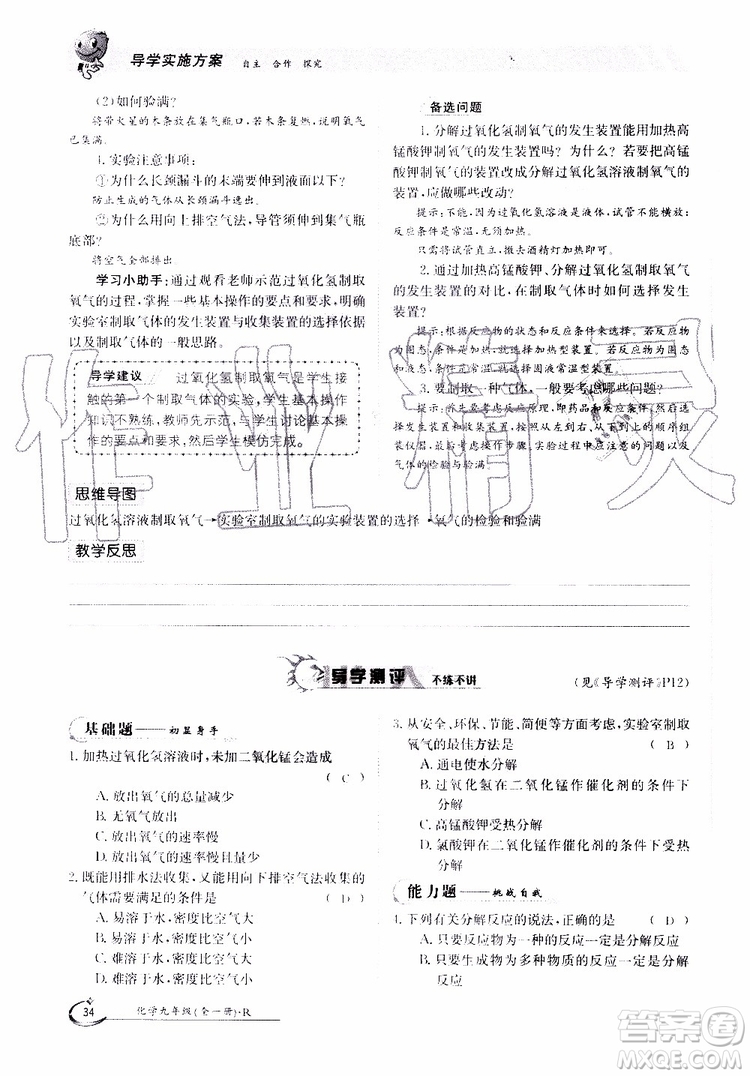 导学实施方案 自主 合作 探究
(2)如何验满?
将带火星的木条放在集气瓶口,若木条复燃,则氧气已
已集满。
1.实验注意事项:
①为什么长颈漏斗的末端要伸到液面以下?
防止生成的气体从长颈漏斗逸出。
②为什么用向上排空气法,导管须伸到集气瓶
底部?
将空气全部排出
学习小助手:通过观看老师示范过氧化氢制取
氧气的过程,掌握一些基本操作的要点和要求,明
确实验室制取气体的发生装置与收集装置的选择依据
以及制取气体的一般思路。
导学建议 过氧化氢制取氧气是学生接
触的第一个制取气体的实验,学生基本操作
知识不熟练,教师先示范,与学生讨论基本操
作的要求,然后学生模仿完成。
思维导图
过氧化氢溶液制取氧气→实验室制取氧气的实验装置的选择→氧气的检验和验满
教学反思
备选问题
1.分解过氧化氢制氧气的发生装置能用加热高
锰酸钾制氧气的发生装置吗?为什么?若要把高锰
酸钾制氧气的装置改成分解过氧化氢溶液制氧气的
装置,应做哪些改动?
提示:不能,因为过氧化氢溶液是液体,试管不能横放;
反应条件是常温,无须加热。
只需将试管直立,撤去酒精灯加热即可。
2.通过加热高锰酸钾、分解过氧化氢制取氧气
的发生装置的对比,在制取气体时如何选择发生
装置?
提示:根据反应物的状态和反应条件来选择。若反应物
都是固体,且需要加热,则选择加热型装置;若反应物
是固体和液体,常温下反应,则选择固液常温型装置。
3.要制取一种气体,一般要考虑哪些问题?
导学测评 不练不讲
(见《导学测评》P12)
基础题——初显身手
1.加热过氧化氢溶液时,未加二氧化锰会造成
( C )
A.放出氧气的总量减少
B.无氧气放出
C.放出氧气的速率慢
D.放出氧气的速率慢且量少
2.既能用排水法收集,又能用向下排空气法收集的
气体需要满足的条件是 ( D )
A.易溶于水,密度比空气大
B.易溶于水,密度比空气小
C.难溶于水,密度比空气大
D.难溶于水,密度比空气小
3.从安全、环保、节能、简便等方面考虑,实验室制取
氧气的最佳方法是 ( B )
A.通电使水分解
B.过氧化氢在二氧化锰作催化剂的条件下
分解
C.高锰酸钾受热分解
D.氯酸钾在二氧化锰作催化剂的条件下受热
分解
能力题——挑战自我
1.下列有关分解反应的说法,正确的是 ( D )
A.只要反应物为一种的反应一定是分解反应
B.只要生成物为多种的反应一定是分解
反应
34 化学九年级(全一册)·R
作业精灵
答案圈
MXQE.COM